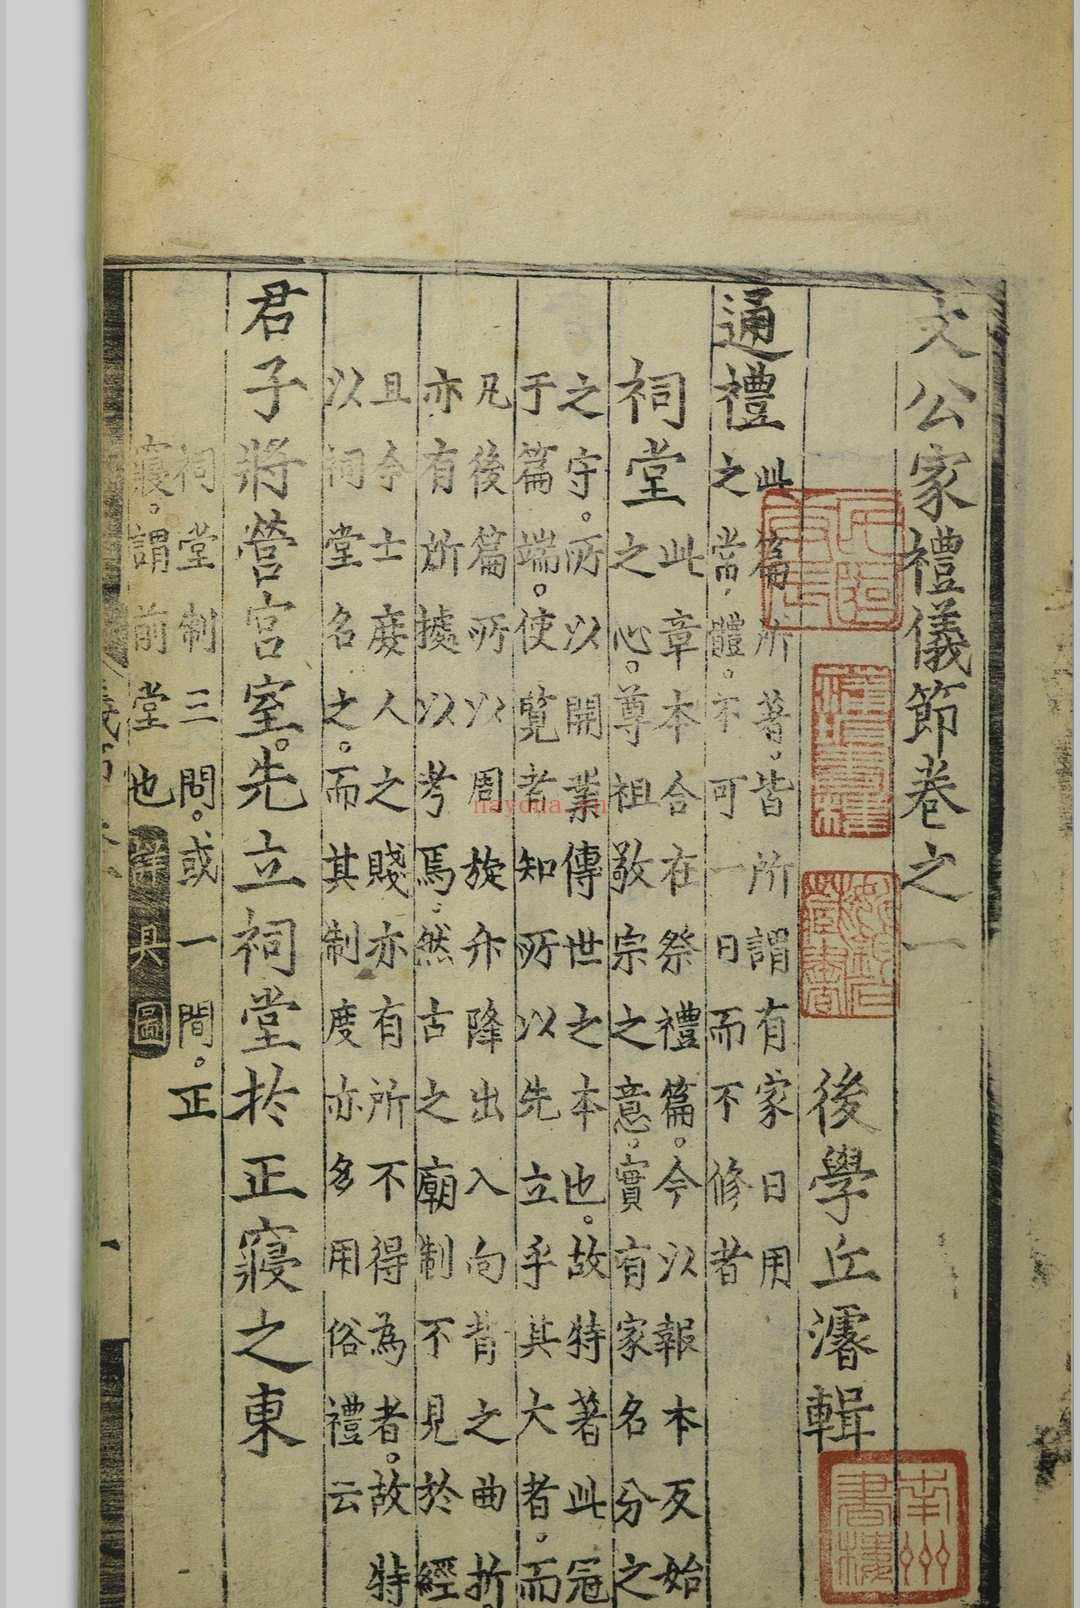 文公家禮儀節卷之一
後學丘濬輯
通禮
此篇所著。皆所謂有家日用
之常體。不可一日而不修者
祠堂
此章本合在祭禮篇。今以報本反始
之心。尊祖敬宗之意。實有家名分之
之守。所以開業傳世之本也。故特著此冠
于篇端。使覽者知所以先立乎其大者。而
凡後篇所以周旋升降出入向背之曲折。
亦有所據以考焉。然古之廟制不見於經
且今士庶人之賤亦有所不得為者。故特
以祠堂名之。而其制度亦多用俗禮云
君子將營宮室。先立祠堂於正寢之東
祠堂制三問。或一間。正
寢。謂前堂也
詳具圖
南州書樓